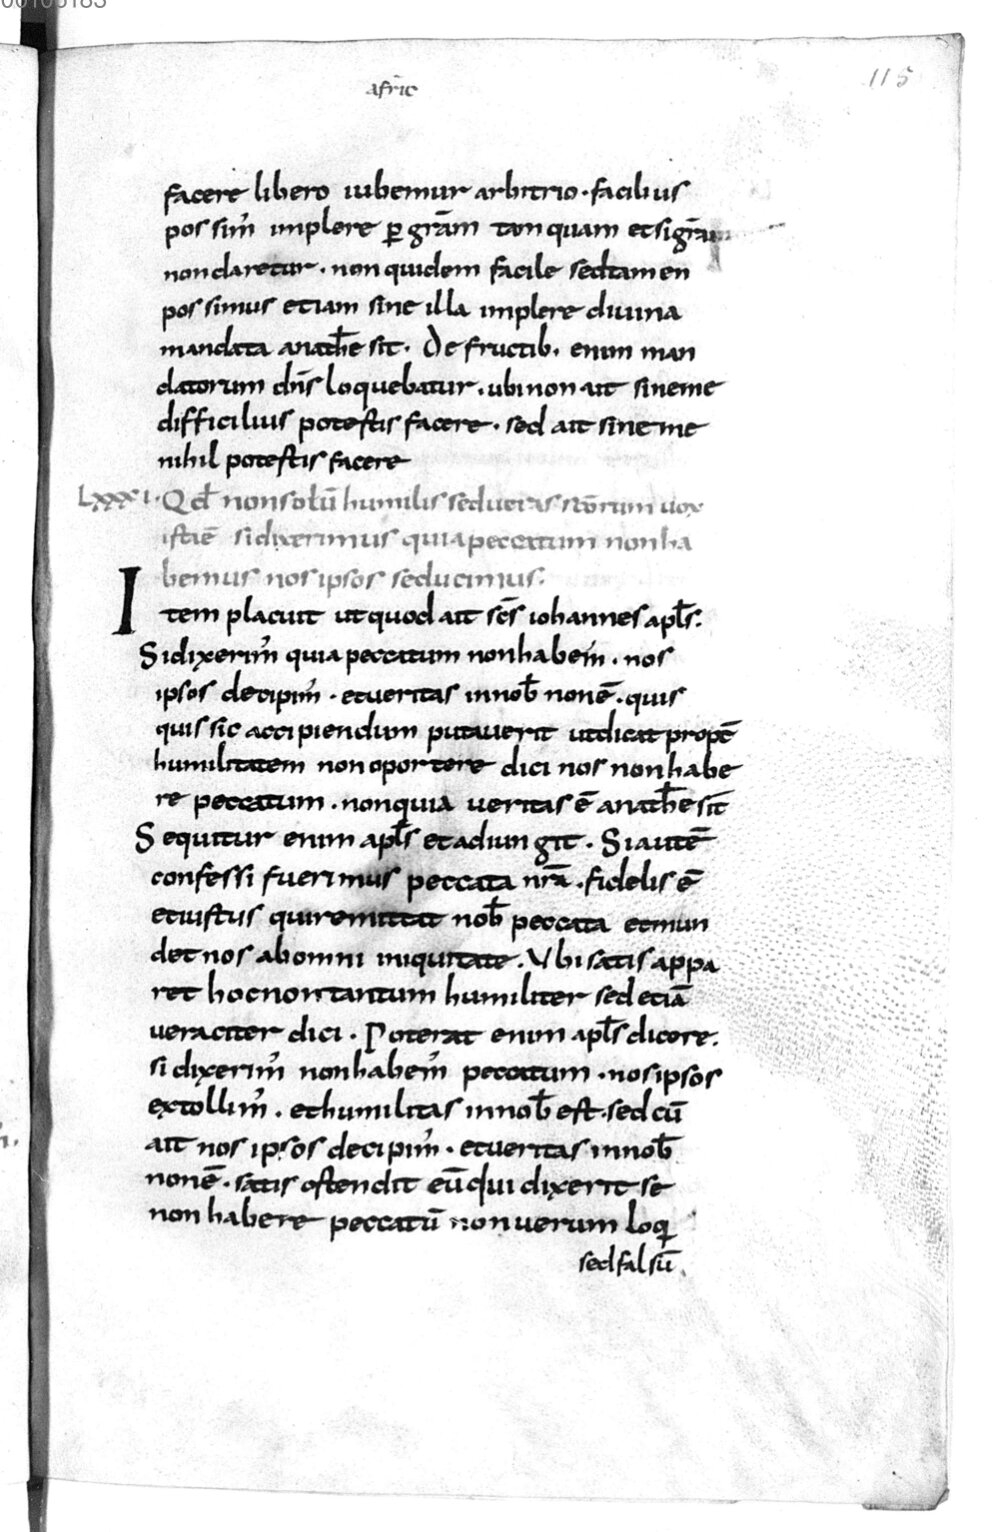 00106183
afric̄
115
facere libero iubemur arbitrio · facilius
possim᾽ implere ꝑ gr̄am tam quam et si gr̄am
non daretur · non quidem facile sed tamen
possimus etiam sine illa implere diuina
mandata anath̄e sit · De fructib; enim man
datorum dn̄s loquebatur · ubi non ait sine me
difficilius potestis facere · sed ait sine me
nihil potestis facere
Lxxxi · Qd̄ non solū humilis sed uera sc̄orum uox
ista ē si dixerimus quia peccatum non ha
bemus nos ipsos seducimus ·
Item placuit ut quod ait sc̄s iohannes apl̄s ·
Si dixerim᾽ quia peccatum non habem᾽ · nos
ipsos decipim᾽ · et ueritas in nob̄ non ē · quis
quis sic accipiendum putauerit ut dicat propt̄
humilitatem non oportere dici nos non habe
re peccatum · non quia ueritas ē anath̄e sit
Sequitur enim apl̄s et adiungit · Si autē
confessi fuerimus peccata nr̄a · fidelis ē
et iustus qui remittat nob̄ peccata et mun
det nos ab omni iniquitate · Vbi satis appa
ret hoc non tantum humiliter sed etiā
ueraciter dici · Poterat enim apl̄s dicere ·
si dixerim᾽ non habem᾽ peccatum · nos ipsos
extollim᾽ · et humilitas in nob̄ est · sed cū
ait nos ipsos decipim᾽ · et ueritas in nob̄
non ē · satis ostendit eū qui dixerit se
non habere peccatū non uerum loqi
sed falsū